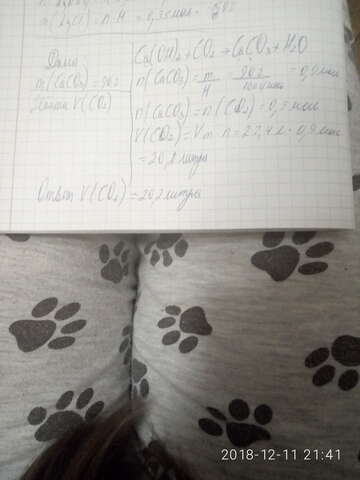 m(
= n·M = 0,3
Дано:
m(CaCO₃)=90г
Найти V(CO₂)
Ca(OH)₂+CO₂→CaCO₃+H₂O
n(CaCO₃)=m/M 90г/100г/моль=0,9моль
n(CaCO₃)=n(CO₂)=0,9 моль
V(CO₂)=Vm·n=22,4л·0,9моль
=20,
Ответ V(CO₂)=20,2литра
2018-12-11 21:41